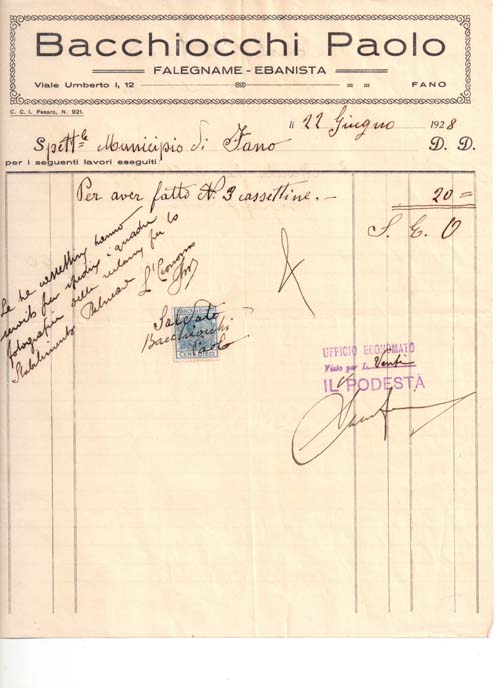 Bacchiocchi Paolo
FALEGNAME - EBANISTA
Viale Umberto I, 12 FANO
C. C. I. Pesaro, N. 921.
li 22 Giugno 1928
Spett.le Municipio di Fano D. D.
per i seguenti lavori eseguiti
Per aver fatto N. 3 cassettine. — 20 =
S. E. O
Le tre cassettine hanno
servito per spedire i quadri
fotografici della reclame per lo
Stabilimento Balneare
L'Economo
Saldato
Bacchiocchi
Paolo
CENT. DIECI
UFFICIO ECONOMATO
Visto per L. Venti
IL PODESTÀ